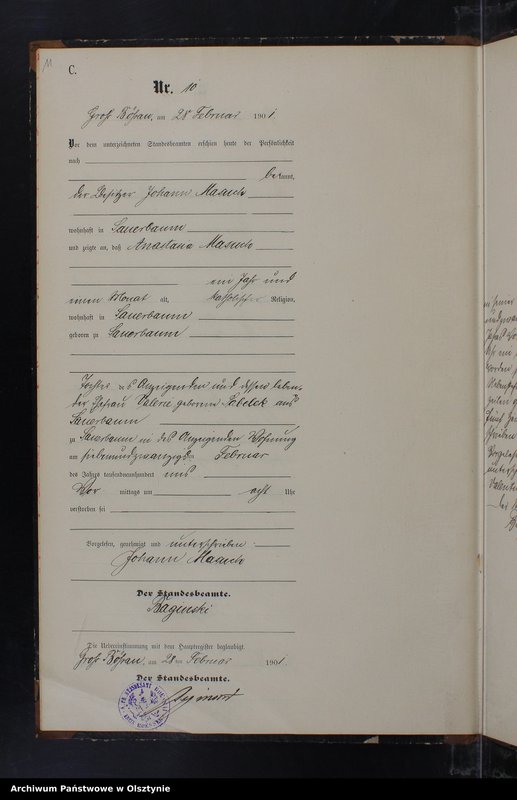 11
C.
Nr. 10
Groß Bößau, am 28 Februar 1901.
Vor dem unterzeichneten Standesbeamten erschien heute der Persönlichkeit
nach
bekannt,
der Besitzer Johann Masuch
wohnhaft in Sauerbaum
und zeigte an, daß Anastasia Masuch
ein Jahr und
neun Monat alt, katholischer Religion,
wohnhaft in Sauerbaum
geboren zu Sauerbaum
Tochter des Anzeigenden und dessen leben-
der Ehefrau Valerie geborene aus
Sauerbaum
zu Sauerbaum in des Anzeigenden Wohnung
am siebenundzwanzigsten Februar
des Jahres tausendneunhundert eins
Vor mittags um acht Uhr
verstorben sei
Vorgelesen, genehmigt und unterschrieben
Johann Masuch
Der Standesbeamte.
Baginski
Die Uebereinstimmung mit dem Hauptregister beglaubigt.
Groß Bößau, am 28 ten Februar 1901.
Der Standesbeamte.
Archiwum Państwowe w Olsztynie